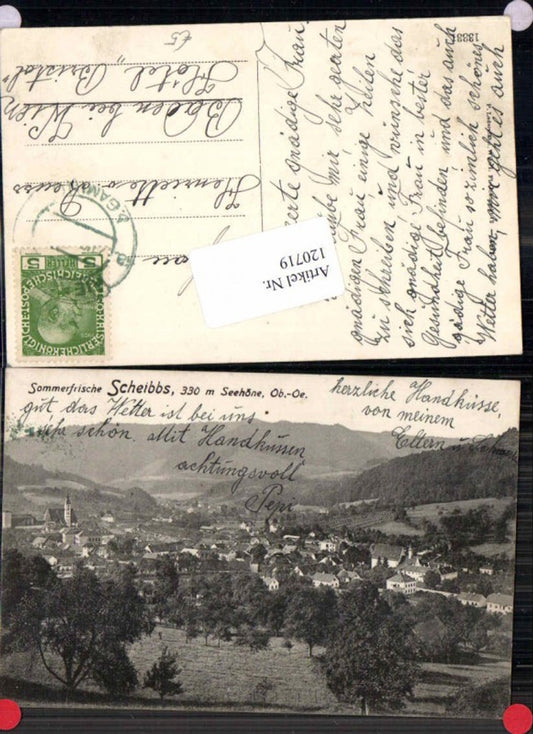 13831
geehrte gnädige Frau,
erlaube mir sehr geerten
gnädigen Frau einige Zeilen
zu schreiben und wünsche das
sich gnädige Frau in bester
Gesundheit befinden und das auch
gädige Frau so zimlich schönes
Wetter haben, mir geht es auch
Henriette
Baden bei Wien
Hôtel „Bristol“
5 HELLER 5
KAISERLICHE KÖNIGLICHE ÖSTERREICHISCHE POST
GAMING
Artikel Nr.
120719
Sommerfrische Scheibbs, 330 m Seehöhe, Ob.-Oe.
gut das Wetter ist bei uns
sehr schön. Mit Handküssen
achtungsvoll
Pepi
herzliche Handküsse,
von meinem
Eltern u.